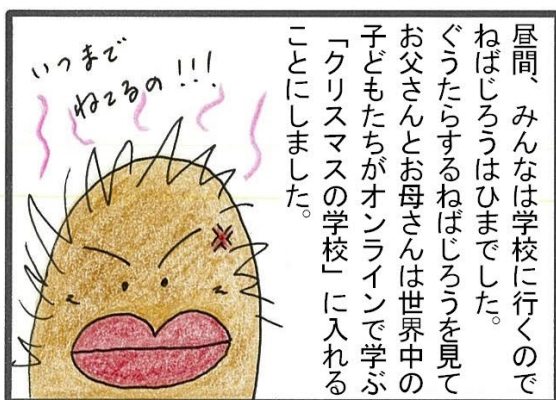 昼間、みんなは学校に行くので
ねばじろうはひまでした。
ぐうたらするねばじろうを見て
お父さんとお母さんは世界中の
子どもたちがオンラインで学ぶ
「クリスマスの学校」に入れる
ことにしました。
いつまで
ねてるの!!!